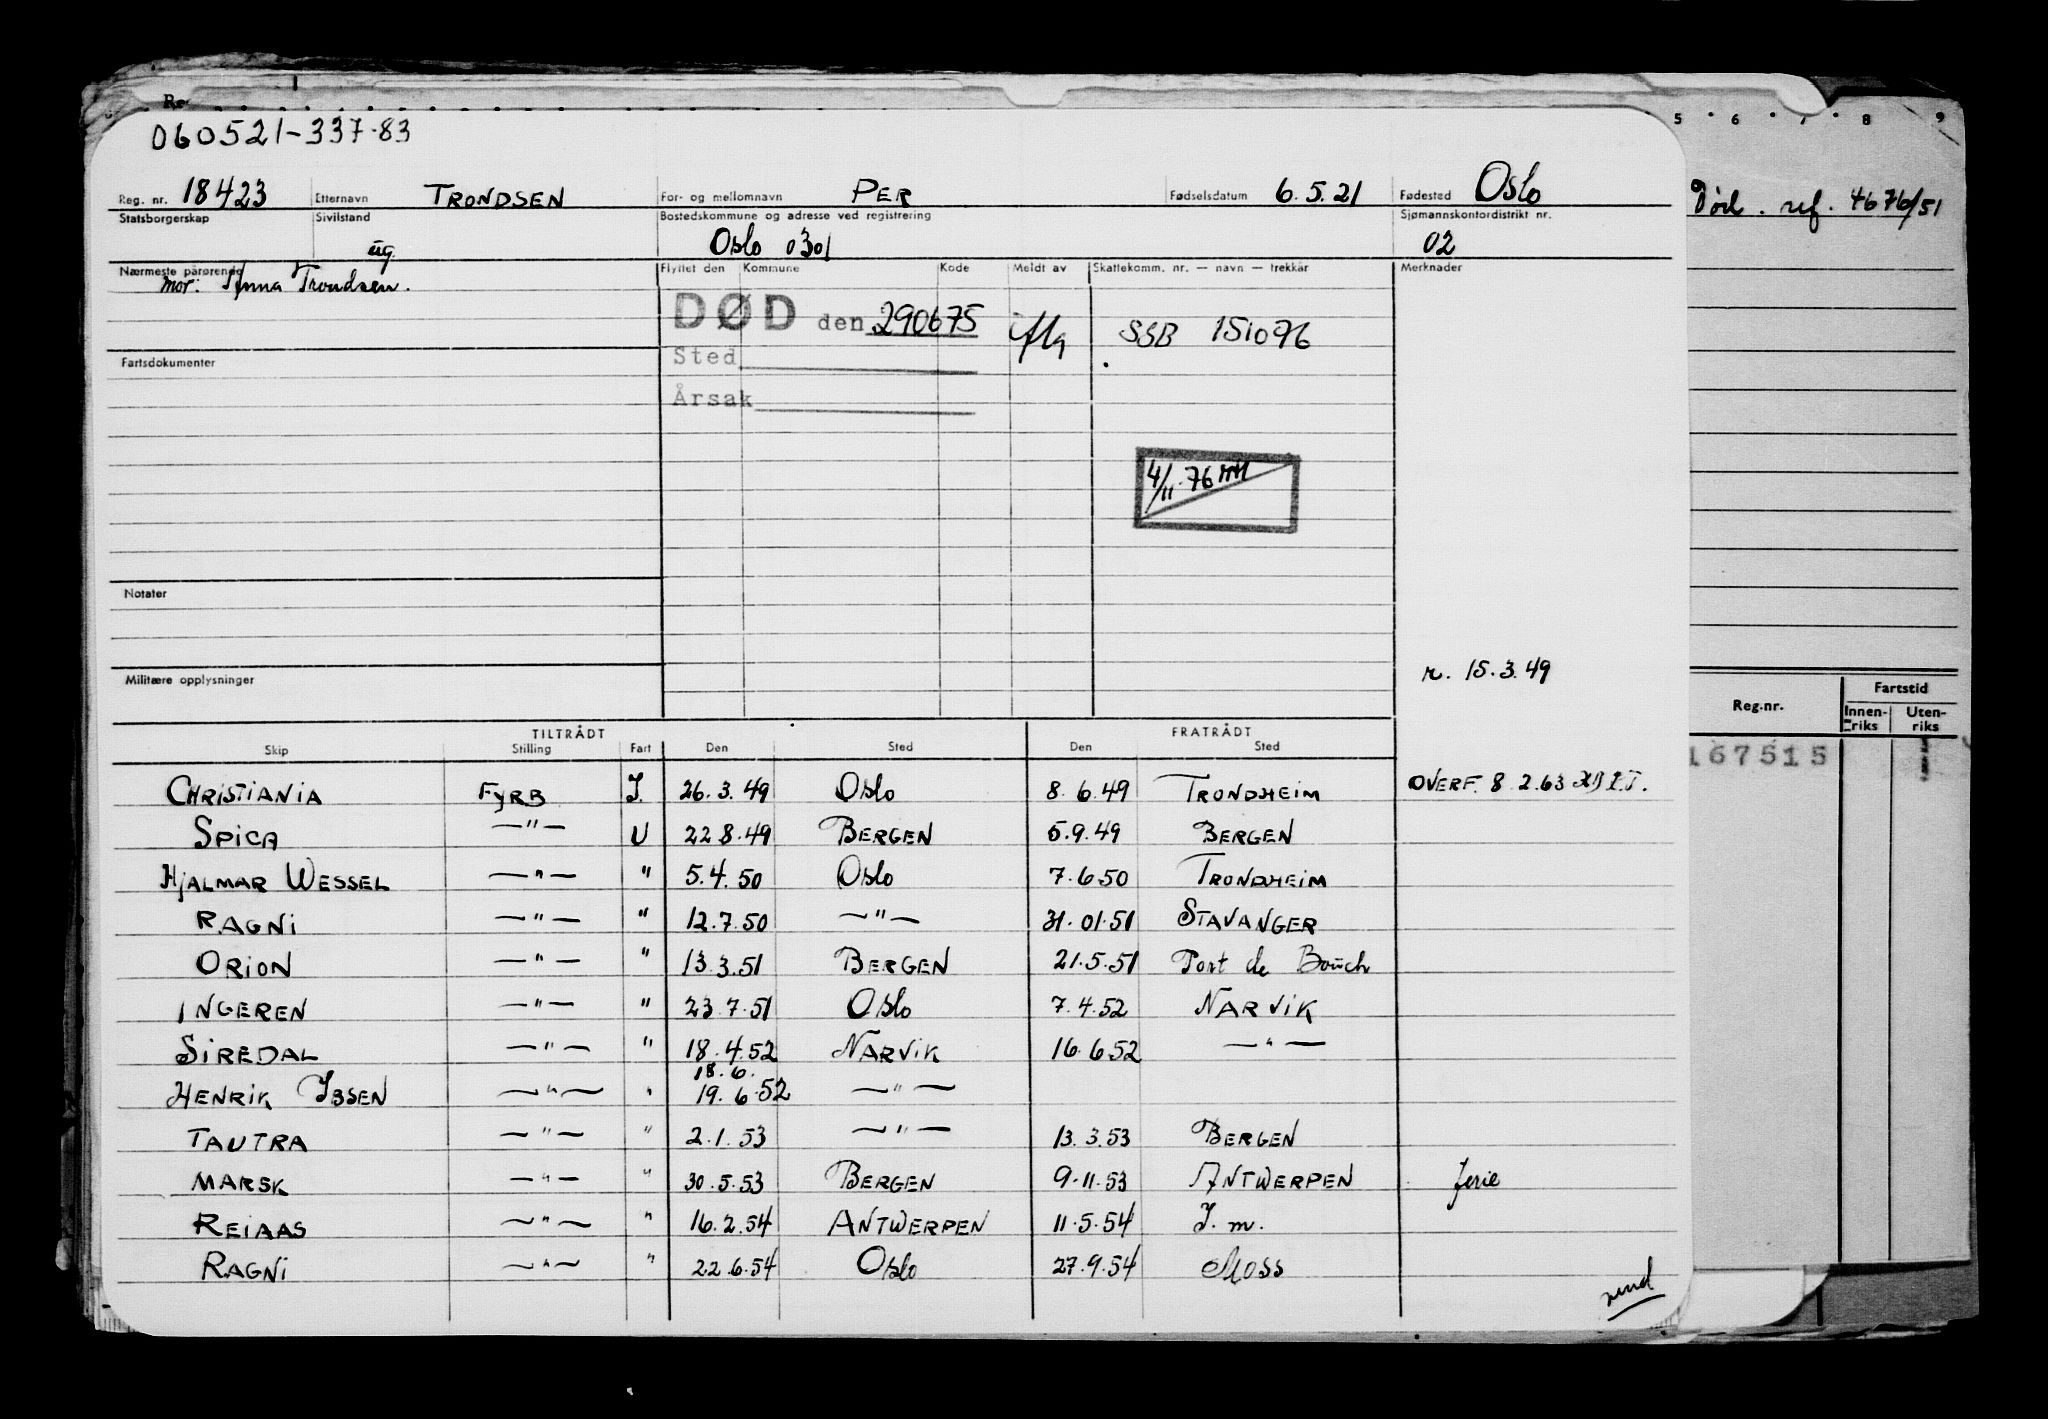 060521-337.83
Reg. nr. 18423 Etternavn TRONDSEN For- og mellomnavn PER Fødselsdatum 6.5.21 Fødested Oslo
Statsborgerskap Sivilstand ug. Bostedskommune og adresse ved registrering Oslo 0301 Sjømannskontordistrikt nr. 02
Nærmeste pårørende mor: Anna Trondsen. Flyttet den Kommune Kode Meldt av Skattekomm. nr. — navn — trekkår Merknader
DØD den 290675 SSB 151076
Sted
Årsak
Fartsdokumenter
4/11.76
Notater
r. 15.3.49
Militære opplysninger
TILTRÅDT FRATRÅDT
Skip Stilling Fart Den Sted Den Sted
CHRISTIANIA FYRB I. 26.3.49 Oslo 8.6.49 TRONDHEIM OVERF. 8.2.63
SPICA —"— U 22 8.49 BERGEN 5.9.49 BERGEN
HJALMAR WESSEL —"— " 5.4.50 Oslo 7.6.50 TRONDHEIM
RAGNI —"— " 12.7.50 —"— 31.01.51 STAVANGER
ORION —"— " 13.3.51 BERGEN 21.5.51 Port de Bouch
INGEREN —"— " 23.7.51 Oslo 7.4.52 NARVIK
SIREDAL —"— " 18.4.52 NARVIK 16.6.52 —"—
18.6.
HENRIK IBSEN —"— " 19.6.52 —"—
TAUTRA —"— " 2.1.53 —"— 13.3.53 BERGEN
MARSK —"— " 30.5.53 BERGEN 9.11.53 ANTWERPEN ferie
REIAAS —"— " 16.2.54 ANTWERPEN 11.5.54 I. m.
RAGNI —"— " 22.6.54 Oslo 27.9.54 Moss
vend
5 6 7 8 9
Død. ref. 4676/51
Reg.nr. Fartstid
Innen-riks Uten-riks
167515